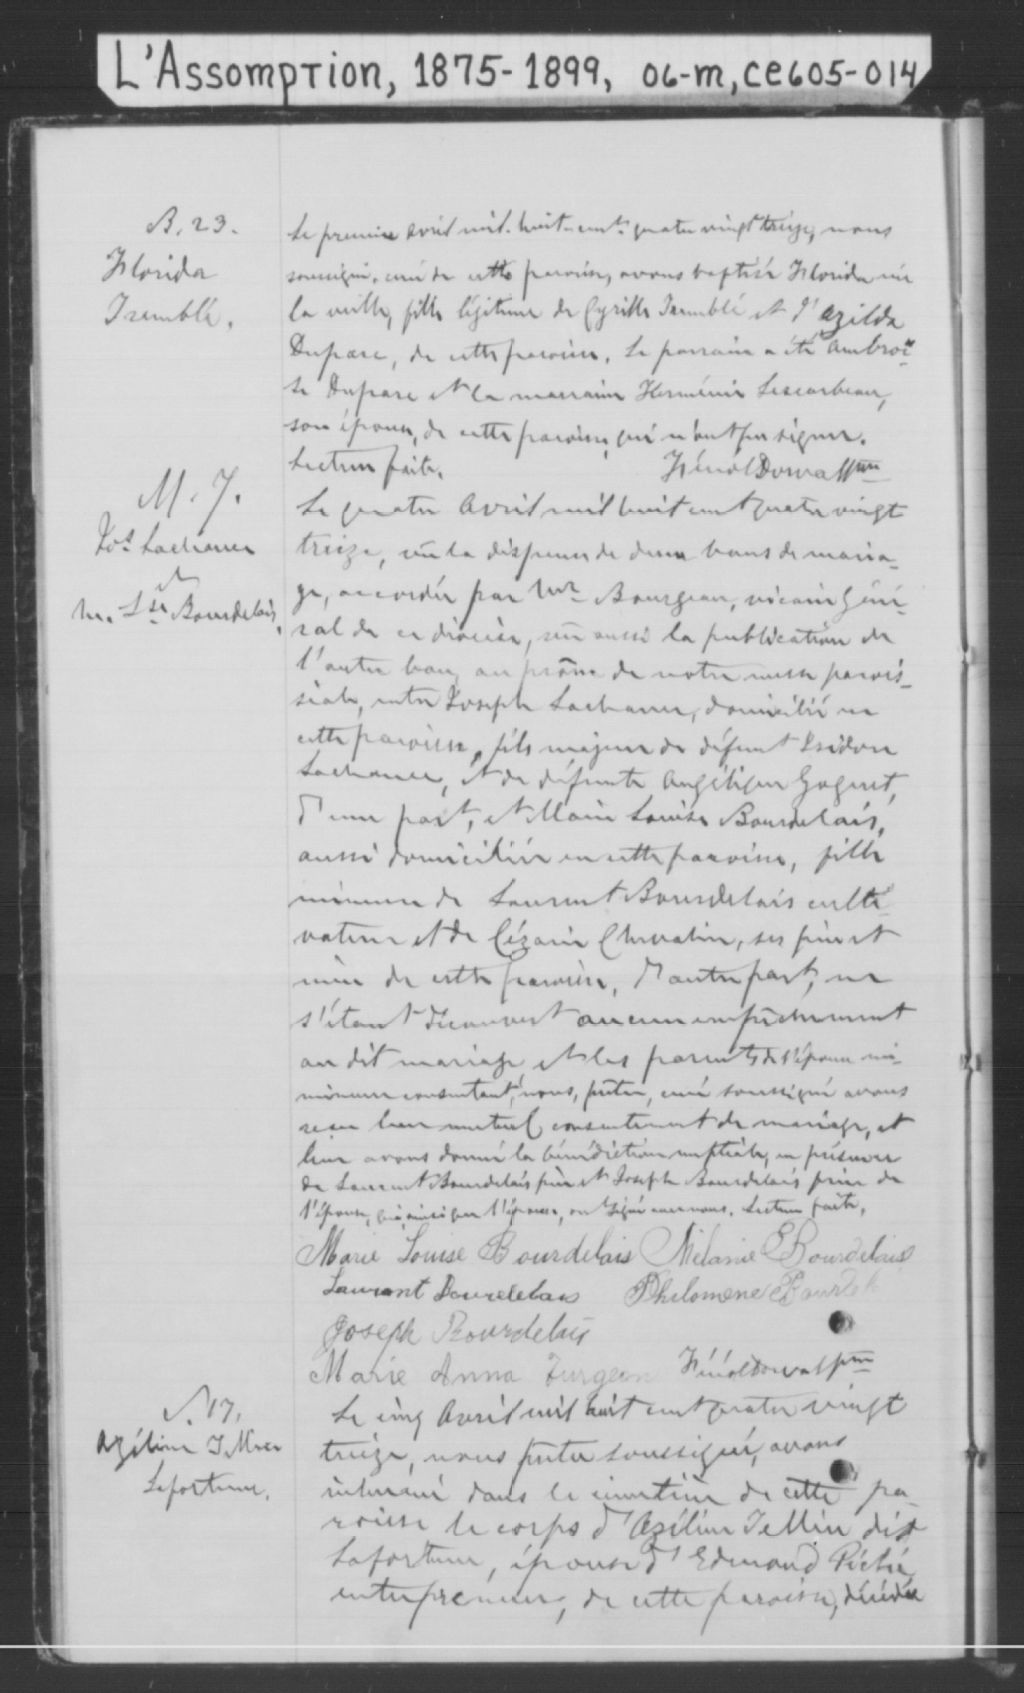 L'Assomption, 1875-1899, 06-M, CE605-014
B. 23.
Florida
Tremblé.
Le premier avril mil-huit-cent-quatre vingt treize, nous
soussigné, curé de cette paroisse, avons baptisé Florida née
la veille, fille légitime de Cyrille Tremblé et d'Azilda
Duparc, de cette paroisse. Le parrain a été Ambroi-
se Duparc et la marraine Herménie Lescarbeau,
son épouse, de cette paroisse, qui n'ont pu signer.
Lecture faite. Ptre
M. 7.
Jos. Lachance
et
M. Lse Bourdelais.
Le quatre Avril mil huit cent quatre vingt
treize, vu la dispense de deux bans de maria-
ge, accordée par Mr Bourgeau, vicaire Géné-
ral de ce diocèse, vu aussi la publication de
l'autre ban au prône de notre messe parois-
siale, entre Joseph Lachance, domicilié en
cette paroisse, fils majeur de défunt Isidore
Lachance, et de défunte Angélique Goguet,
d'une part, et Marie Louise Bourdelais,
aussi domiciliée en cette paroisse, fille
mineure de Laurent Bourdelais culti-
vateur et de Césarie Chevalier, ses père et
mère de cette paroisse, d'autre part, ne
s'étant découvert aucun empêchement
au dit mariage et les parents de l'épouse mi-
mineure consentant, nous, prêtre, curé soussigné avons
reçu leur mutuel consentement de mariage, et
leur avons donné la bénédiction nuptiale, en présence
de Laurent Bourdelais père et Joseph Bourdelais frère de
l'épouse, qui ainsi que l'épouse, ont signé avec nous. Lecture faite.
Marie Louise Bourdelais Mélanie Bourdelais
Laurent Bourdelais Philomene
Joseph Bourdelais
Marie Anna Turgeon Ptre
S. 17.
Azéline
Lafortune.
Le cinq Avril mil huit cent quatre vingt
treize, nous prêtre soussigné, avons
inhumé dans le cimetière de cette pa
roisse le corps d'Azéline dit
Lafortune, épouse d'Edmond Piché
entrepreneur, de cette paroisse, décédée